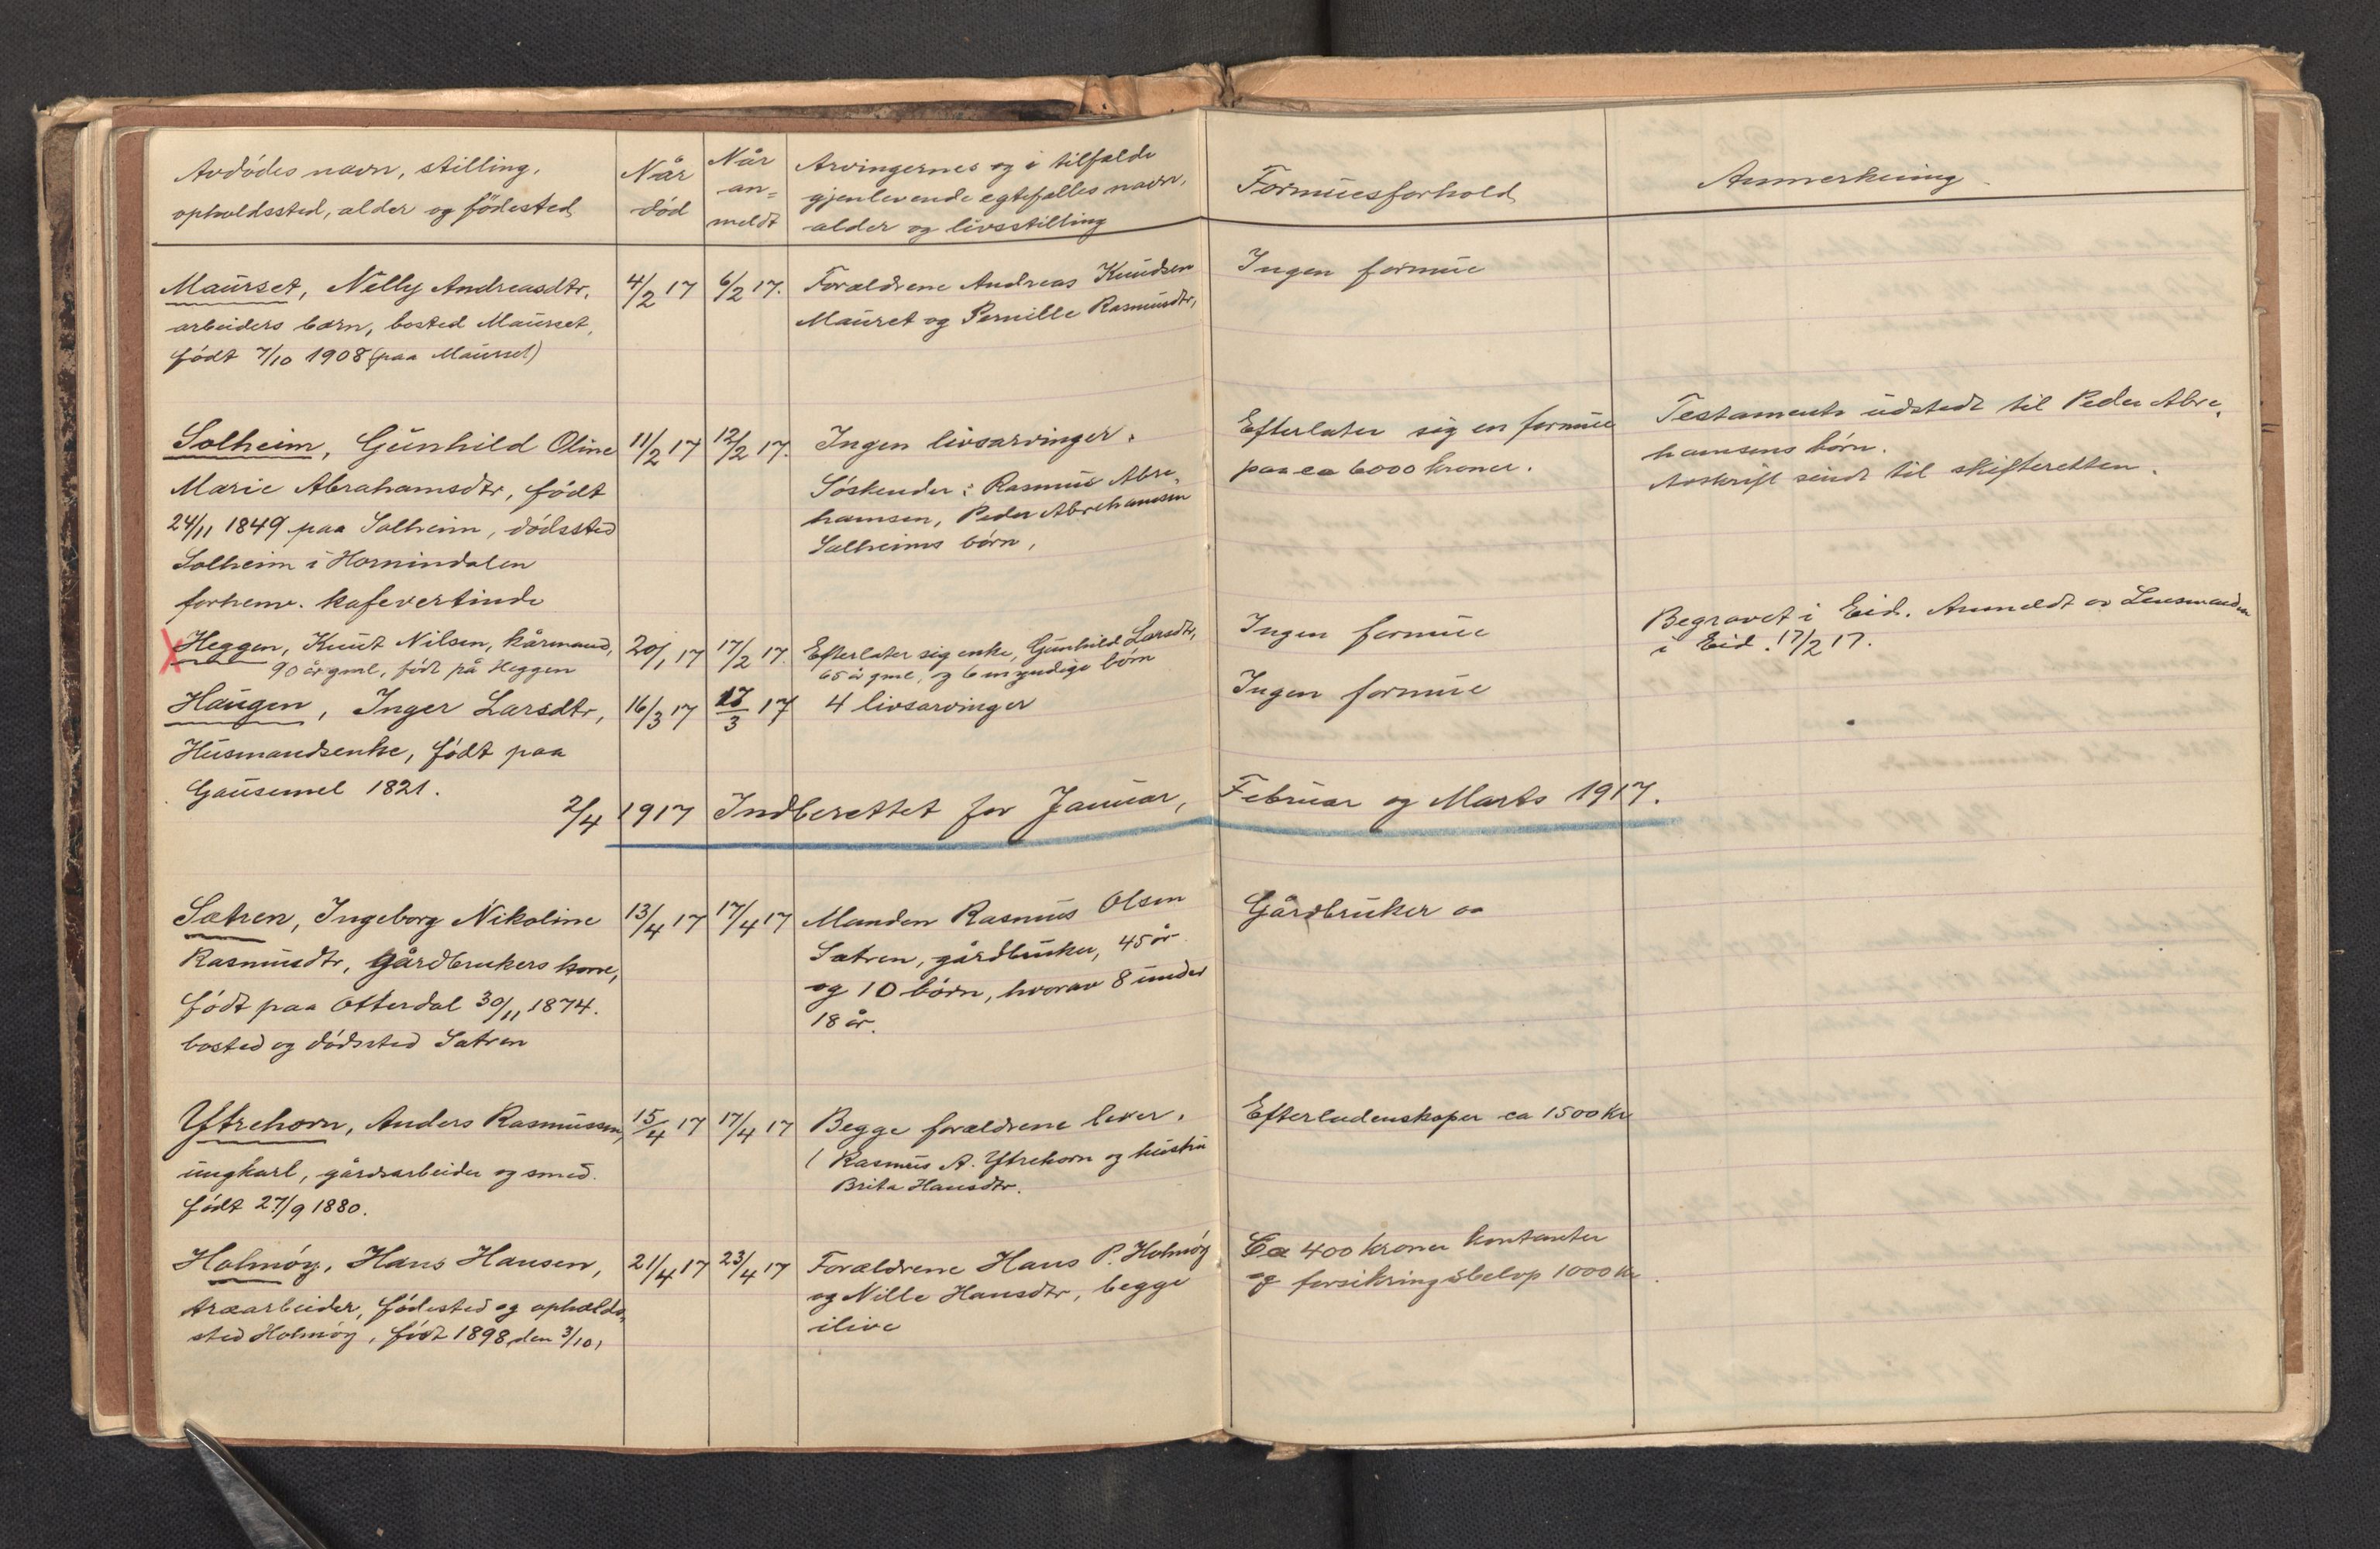 Avdødes navn, stilling,
opholdssted, alder og fødested
Når
død
Når
an=
meldt
Arvingernes og i tilfælde
gjenlevende egtefælles navn,
alder og livsstilling
Formuesforhold
Anmerkning
Maurset, Nelly Andreasdtr,
arbeiders barn, bosted Maurset,
født 7/10 1908 (paa Maurset)
4/2 17
6/2 17.
Forældrene Andreas Knudsen
Mauret og Pernille Rasmusdtr,
Ingen formue
Solheim, Gunhild Oline
Marie Abrahamsdtr, født
24/11 1849 paa Solheim, dødssted
Solheim i Hornindalen
forhenv. kafevertinde
11/2 17
12/2 17.
Ingen livsarvinger.
Søskender: Rasmus Abra-
hamsen, Peder Abrahamsen
Solheims børn,
Efterlater sig en formue
paa ca 6000 kroner.
Testamente udstedt til Peder Abra-
hamsens børn.
Avskrift sendt til skifteretten.
X Heggen, Knut Nilsen, kårmand,
90 år gml, født på Heggen
20/1 17
17/2 17.
Efterlater sig enke, Gunhild Larsdtr,
65 år gml, og 6 myndige børn
Ingen formue
Begravet i Eid. Anmeldt av Lensmanden
i Eid. 17/2 17.
Haugen, Inger Larsdtr,
Husmandsenke, født paa
Gausemel 1821.
16/3 17
17/3 17
4 livsarvinger
Ingen formue
2/4 1917 Indberettet for Januar, Februar og Marts 1917.
Sætren, Ingeborg Nikoline
Rasmusdtr, gårdbrukers kone,
født paa Otterdal 30/11 1874.
bosted og dødssted Sætren
13/4 17
17/4 17
Manden Rasmus Olsen
Sætren, gårdbruker, 45 år
og 10 børn, hvorav 8 under
18 år.
Gårdbruker oa
Ytrehorn, Anders Rasmussen,
ungkarl, gårdsarbeider og smed.
født 27/9 1880.
15/4 17
17/4 17
Begge forældrene lever,
(Rasmus A. Ytrehorn og hustru
Brita Hansdtr.
Efterladenskaper ca 1500 kr
Holmøy, Hans Hansen,
træarbeider, fødested og opholds-
sted Holmøy, født 1898, den 3/10,
21/4 17
23/4 17
Forældrene Hans P. Holmøy
og Nille Hansdtr, begge
ilive
Ca 400 kroner kontanter
og forsikringsbeløp 1000 kr.